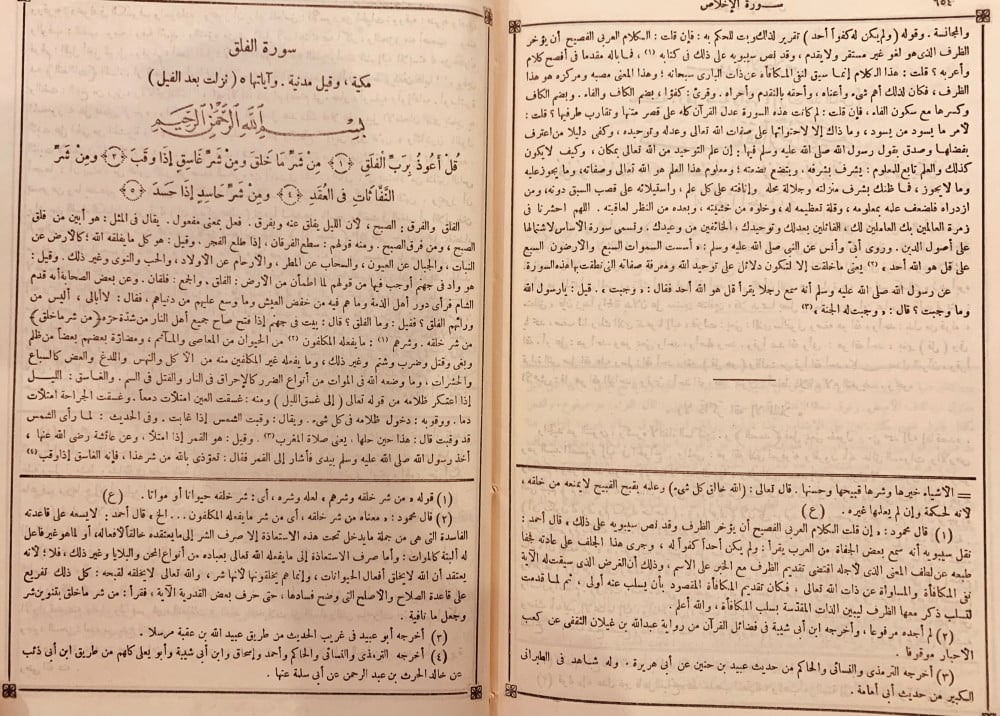 ٦٥٤
سورة الإخلاص
والمجانسة . وقوله (ولم يكن له كفواً أحد) تقرير لذلك وبت للحكم به : فإن قلت : الكلام العربى الفصيح أن يؤخر
الظرف الذى هو لغو غير مستقر ولا يقدم ، وقد نص سيبويه على ذلك فى كتابه (١) ، فما باله مقدما فى أفصح كلام
وأعربه ؟ قلت : هذا الكلام إنما سيق لنفى المكافأة عن ذات البارى سبحانه ؛ وهذا المعنى مصبه ومركزه هو هذا
الظرف ، فكان لذلك أهم شىء وأعناه ، وأحقه بالتقدم وأحراه . وقرئ : كفؤا ، بضم الكاف والفاء . وبضم الكاف
وكسرها مع سكون الفاء ، فإن قلت : لم كانت هذه السورة عدل القرآن كله على قصر متنها وتقارب طرفيها ؟ قلت :
لأمر ما يسود من يسود ، وما ذاك إلا لاحتوائها على صفات الله تعالى وعدله وتوحيده ، وكفى دليلا من اعترف
بفضلها وصدق بقول رسول الله صلى الله عليه وسلم فيها : إن علم التوحيد من الله تعالى بمكان ، وكيف لا يكون
كذلك والعلم تابع للمعلوم : يشرف بشرفه . ويتضع بضعته ؛ ومعلوم هذا العلم هو الله تعالى وصفاته ، وما يجوز عليه
وما لا يجوز ، فما ظنك بشرف منزلته وجلالة محله وإنافته على كل علم ، واستيلائه على قصب السبق دونه ، ومن
ازدراه فلضعف علمه بمعلومه ، وقلة تعظيمه له ، وخلوه من خشيته ، وبعده من النظر لعاقبته . اللهم احشرنا فى
زمرة العالمين بك العاملين لك ، القائلين بعدلك وتوحيدك ، الخائفين من وعيدك . وتسمى سورة الأساس لاشتمالها
على أصول الدين . وروى أبىّ وأنس عن النبى صلى الله عليه وسلم : « أسست السموات السبع والأرضون السبع
على قل هو الله أحد » (٢) يعنى ما خلقت إلا لتكون دلائل على توحيد الله ومعرفة صفاته التى نطقت بها هذه السورة:
عن رسول الله صلى الله عليه وسلم أنه سمع رجلا يقرأ قل هو الله أحد فقال : « وجبت » . قيل : يا رسول الله
وما وجبت ؟ قال : « وجبت له الجنة » . (٣)
= الأشياء خيرها وشرها قبيحها وحسنها . قال تعالى : (الله خالق كل شىء) وعلمه بقبح القبيح لا يمنعه من خلقه ،
لأنه لحكمة وإن لم يعلمها غيره . (ع)
(١) قال محمود : « إن قلت الكلام العربى الفصيح أن يؤخر الظرف وقد نص سيبويه على ذلك ، قال أحمد :
نقل سيبويه أنه سمع بعض الجفاة من العرب يقرأ : ولم يكن أحداً كفواً له ، وجرى هذا الجلف على عادته لجفا
طبعه عن لطف المعنى الذى لأجله اقتضى تقديم الظرف مع الخبر على الاسم ، وذلك أن الغرض الذى سيقت له الآية
نفى المكافأة والمساواة عن ذات الله تعالى ، فكان تقديم المكافأة المقصود بأن يسلب عنه أولى ، ثم لما قدمت
لتسلب ذكر معها الظرف ليبين الذات المقدسة بسلب المكافأة ، والله أعلم .
(٢) لم أجده مرفوعا ، وأخرجه ابن أبى شيبة فى فضائل القرآن من رواية عبدالله بن غيلان الثقفى عن كعب
الأحبار موقوفا .
(٣) أخرجه الترمذى والنسائى والحاكم من حديث عبيد بن حنين عن أبى هريرة . وله شاهد فى الطبرانى
الكبير من حديث أبى أمامة .
سورة الفلق
مكية ، وقيل مدنية . وآياتها ٥ (نزلت بعد الفيل)
بسم الله الرحمن الرحيم
قُلْ أَعُوذُ بِرَبِّ الْفَلَقِ (١) مِن شَرِّ مَا خَلَقَ وَمِنْ شَرِّ غَاسِقٍ إِذَا وَقَبَ (٣) وَمِنْ شَرِّ
النَّفَّاثَاتِ فِى الْعُقَدِ (٤) وَمِنْ شَرِّ حَاسِدٍ إِذَا حَسَدَ (٥)
الفلق والفرق : الصبح ، لأن الليل يفلق عنه ويفرق . فعل بمعنى مفعول . يقال فى المثل : هو أبين من فلق
الصبح ، ومن فرق الصبح . ومنه قولهم : سطع الفرقان ، إذا طلع الفجر . وقيل : هو كل ما يفلقه الله ؛ كالأرض عن
النبات ، والجبال عن العيون ، والسحاب عن المطر ، والأرحام عن الأولاد ، والحب والنوى وغير ذلك . وقيل :
هو واد فى جهنم أو جب فيها من قولهم لما اطمأن من الأرض : الفلق . والجمع : فلقان . وعن بعض الصحابة أنه قدم
الشام فرأى دور أهل الذمة وما هم فيه من خفض العيش وما وسع عليهم من دنياهم ، فقال : لا أبالى ، أليس من
ورائهم الفلق ؟ فقيل : وما الفلق ؟ قال : بيت فى جهنم إذا فتح صاح جميع أهل النار من شدة حره (من شر ما خلق)
من شر خلقه . وشرهم (١) : ما يفعله المكلفون (٢) من الحيوان من المعاصى والمآثم ، ومضارّة بعضهم بعضاً من ظلم
وبغى وقتل وضرب وشتم وغير ذلك ، وما يفعله غير المكلفين منه من الأكل والنهس واللدغ والعض كالسباع
والحشرات ، وما وضعه الله فى الموات من أنواع الضرر كالإحراق فى النار والقتل فى السم . والغاسق : الليل
إذا اعتكر ظلامه من قوله تعالى (إلى غسق الليل) ومنه : غسقت العين امتلأت دمعاً . وغسقت الجراحة امتلأت
دما . ووقوبه : دخول ظلامه فى كل شىء . ويقال : وقبت الشمس إذا غابت . وفى الحديث : لما رأى الشمس
قد وقبت قال : هذا حين حلها ، يعنى صلاة المغرب (٣) . وقيل : هو القمر إذا امتلأ ، وعن عائشة رضى الله عنها ،
أخذ رسول الله صلى الله عليه وسلم بيدى فأشار إلى القمر فقال : تعوّذى بالله من شر هذا ، فإنه الغاسق إذا وقب (٤)
(١) قوله « من شر خلقه وشرهم » لعله وشره ، أى : شر خلقه حيوانا أو مواتا . (ع)
(٢) قال محمود : « معناه من شر خلقه ، أى من شر ما يفعله المكلفون ... الخ » قال أحمد : لا يسعه على قاعدته
الفاسدة التى هى من جملة ما يدخل تحت هذه الاستعاذة إلا صرف الشر إلى ما يعتقده خالقاً لأفعاله، أو لما هو غير فاعل
له ألبتة كالموات : وأما صرف الاستعاذة إلى ما يفعله الله تعالى بعباده من أنواع المحن والبلايا وغير ذلك ، فلا ؛ لأنه
يعتقد أن الله لا يخلق أفعال الحيوانات ، وإنما هم يخلقونها لأنها شر ، والله تعالى لا يخلقه لقبحه : كل ذلك تفريع
على قاعدة الصلاح والأصلح التى وضح فسادها ، حتى حرف بعض القدرية الآية ، فقرأ : من شر ما خلق بتنوين شر
وجعل ما نافية .
(٣) أخرجه أبو عبيد فى غريب الحديث من طريق عبيد الله بن عقبة مرسلا .
(٤) أخرجه الترمذى والنسائى والحاكم وأحمد وإسحاق وابن أبى شيبة وأبو يعلى كلهم من طريق ابن أبى ذئب
عن خالد الحرث بن عبد الرحمن عن أبى سلمة عنها .